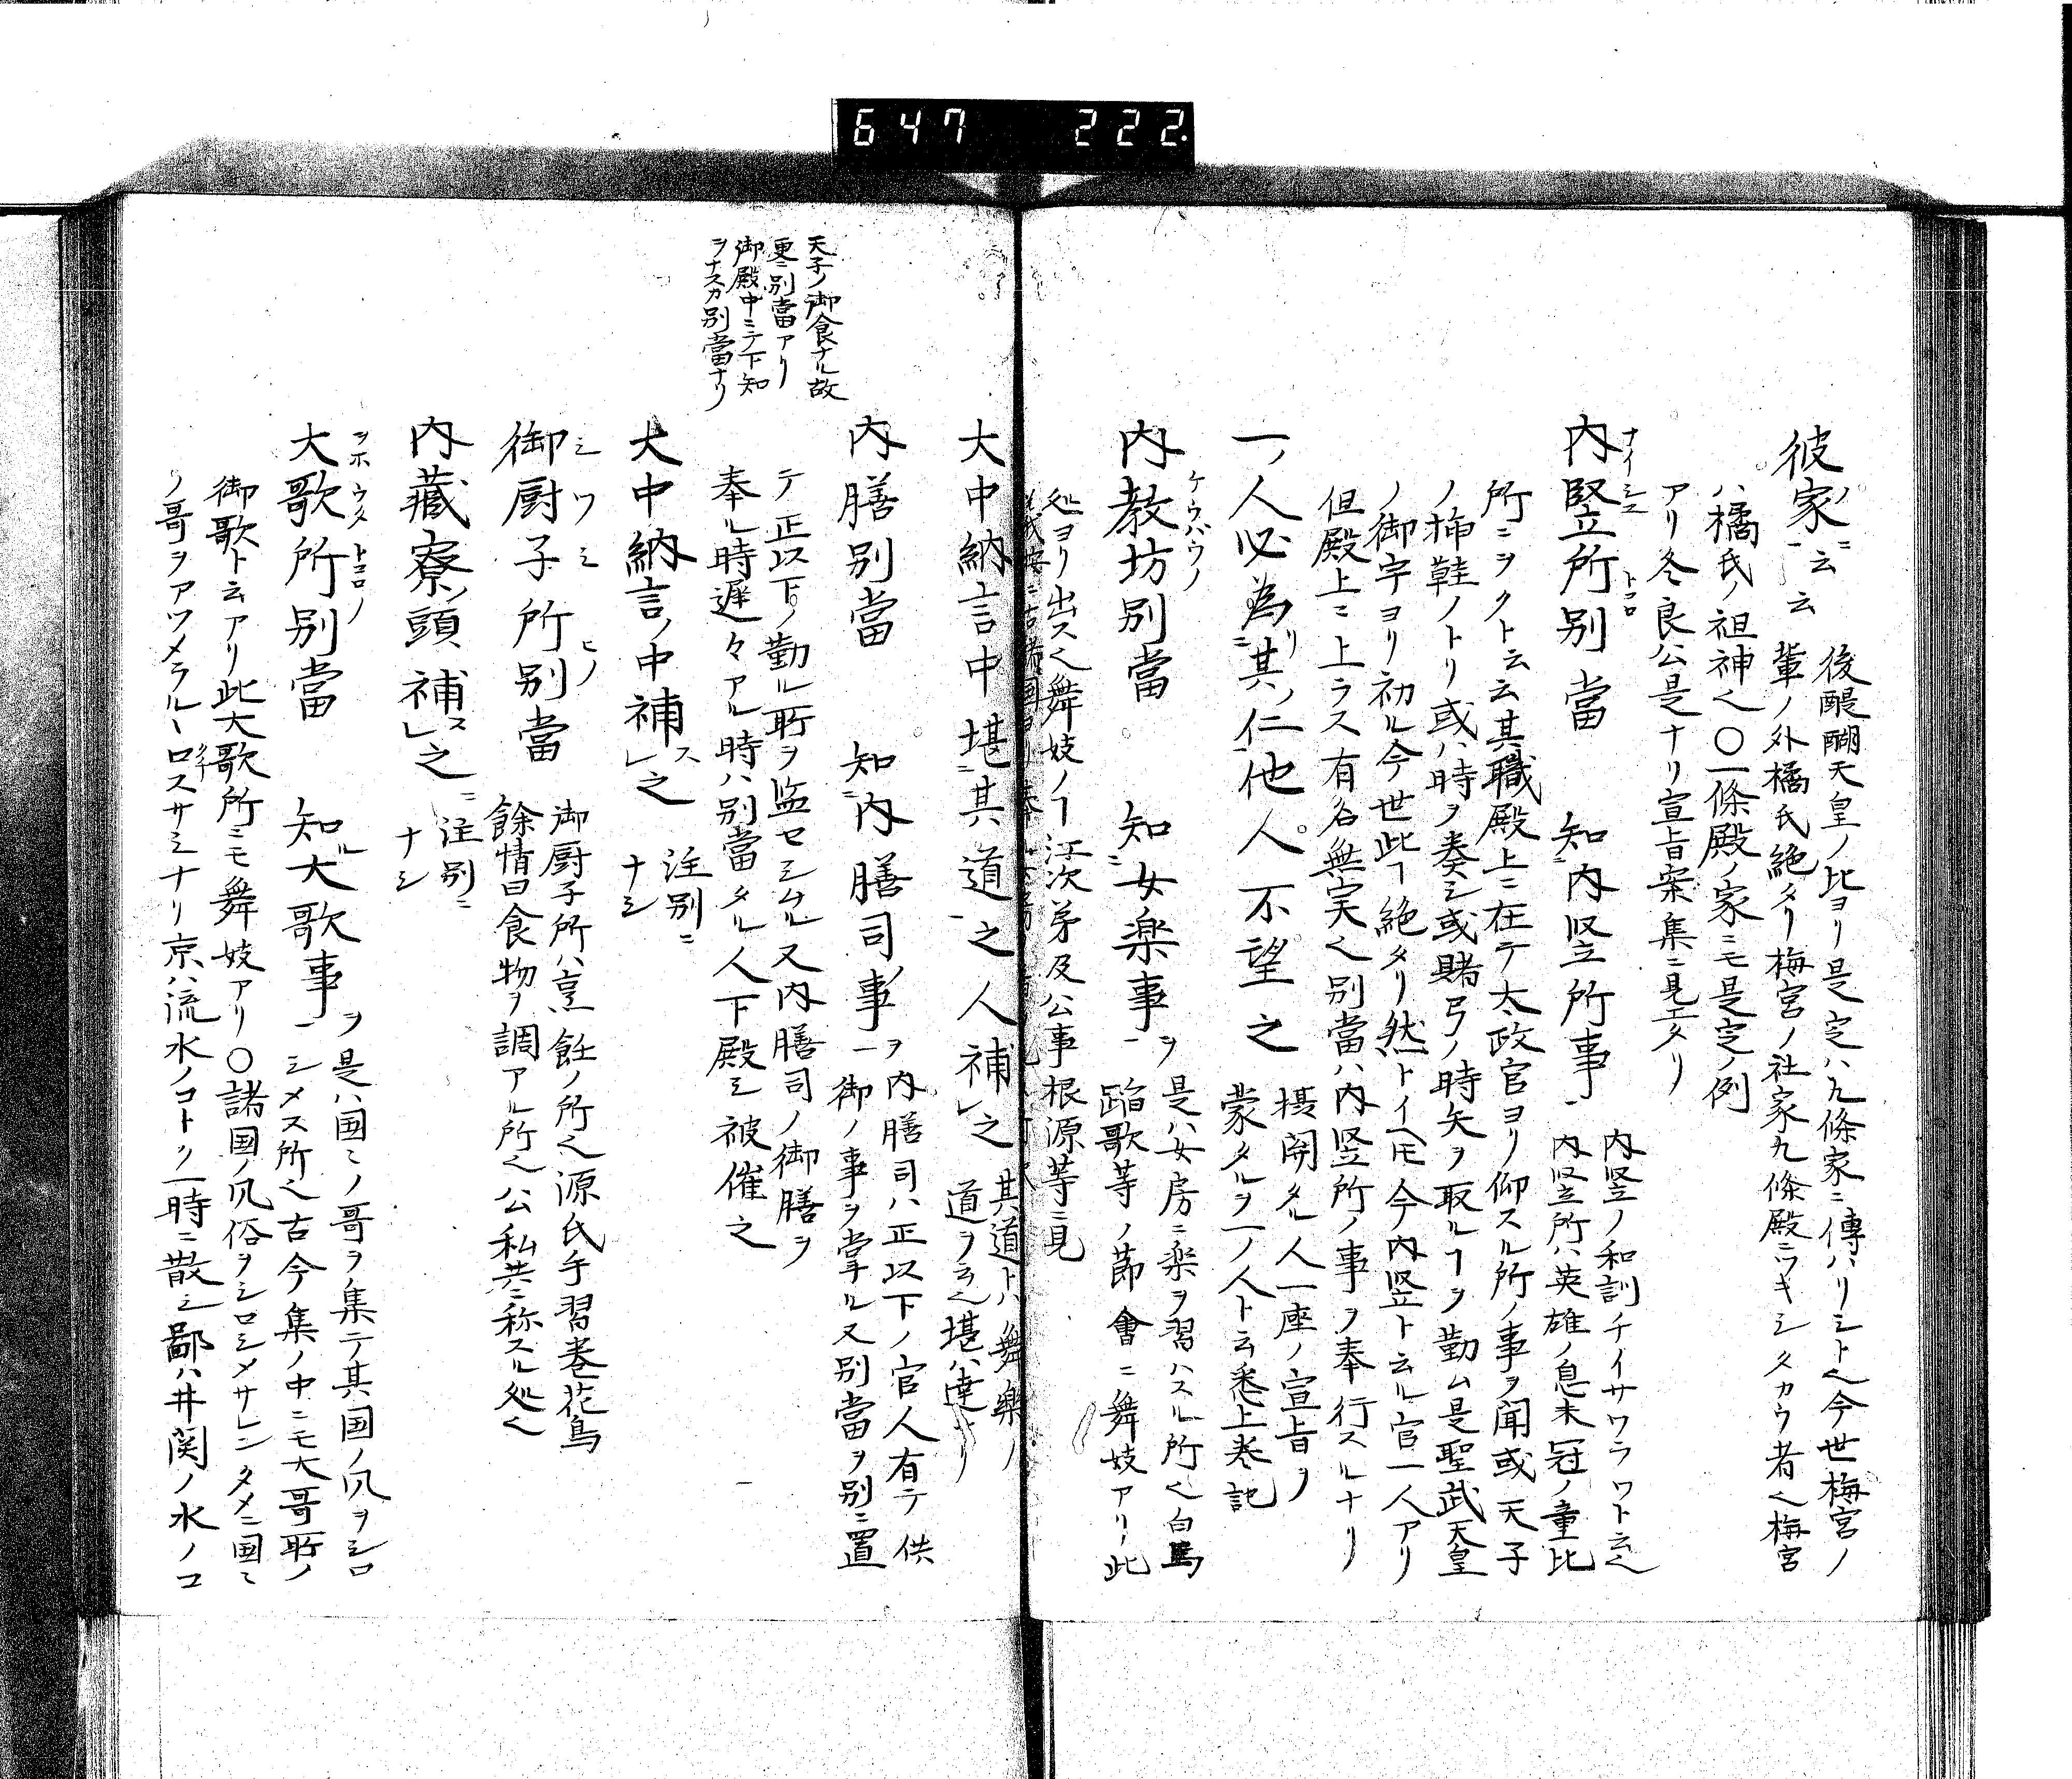 647 222
彼家ノニ云云
後醍醐天皇ノ比ヨリ是定ハ九條家ニ傳ハリシト也今世梅宮ノ
輩ノ外橘氏絶タリ梅宮ノ社家九條殿ニツキシタカウ者也梅宮
ハ橘氏ノ祖神也〇一條殿ノ家ニモ是定ノ例
アリ冬良公是ナリ宣旨案集ニ見エタリ
内竪所別當 知内竪所事
内竪ノ和訓チイサワラワト云也
内竪所ハ英雄ノ息末冠ノ童比
所ニヲクト云云其職殿上ニ在テ太政官ヨリ仰スル所ノ事ヲ聞或天子
ノ挿鞋ノトリ或ハ時ヲ奏シ或賭弓ノ時矢ヲ取ルヿヲ勤ム是聖武天皇
ノ御宇ヨリ初ル今世此ヿ絶タリ然トイヘ𪜈今内竪ト云ル官一人アリ
但殿上ニ上ラス有名無実也別當ハ内竪所ノ事ヲ奉行スルナリ
一ノ人必為其ノ仁他人不望之
摂関タル人一座ノ宣旨ヲ
蒙タルヲ一ノ人ト云悉上巻記
内教坊別當 知女楽事
是ハ女房ニ楽ヲ習ハスル所也白馬
蹈歌等ノ節會ニ舞妓アリ此
処ヨリ出ス也舞妓ノヿ江次第及公事根源等ニ見
大中納言中堪其道之人補之
其道トハ舞樂ノ
道ヲ云也堪ハ達ナリ
天子ノ御食ナル故
更ニ別當アリ
御殿中ニテ下知
ヲナスカ別當ナリ
内膳別當 知内膳司事
内膳司ハ正以下ノ官人有テ供
御ノ事ヲ掌ル又別當ヲ別ニ置
テ正以下ノ勤ル所ヲ監セシムル又内膳司ノ御膳ヲ
奉ル時遅々アル時ハ別當タル人下殿シ被催之
大中納言ノ中補之
注別ニ
ナシ
御厨子所別當
御厨子所ハ烹飪ノ所也源氏手習巻花鳥
餘情曰食物ヲ調アル所也公私共ニ称スル処也
内藏寮ノ頭補之
注別ニ
ナシ
大歌所別當 知大歌事
是ハ国ミノ哥ヲ集テ其国ノ風ヲシロ
シメス所也古今集ノ中ニモ大哥所ノ
御歌ト云アリ此大歌所ニモ舞妓アリ〇諸国ノ風俗ヲシロシメサレンタメニ国ミ
ノ哥ヲアツメラルヽ
ナリ京ハ流水ノコトク一時ニ散シ鄙ハ井関ノ水ノコ